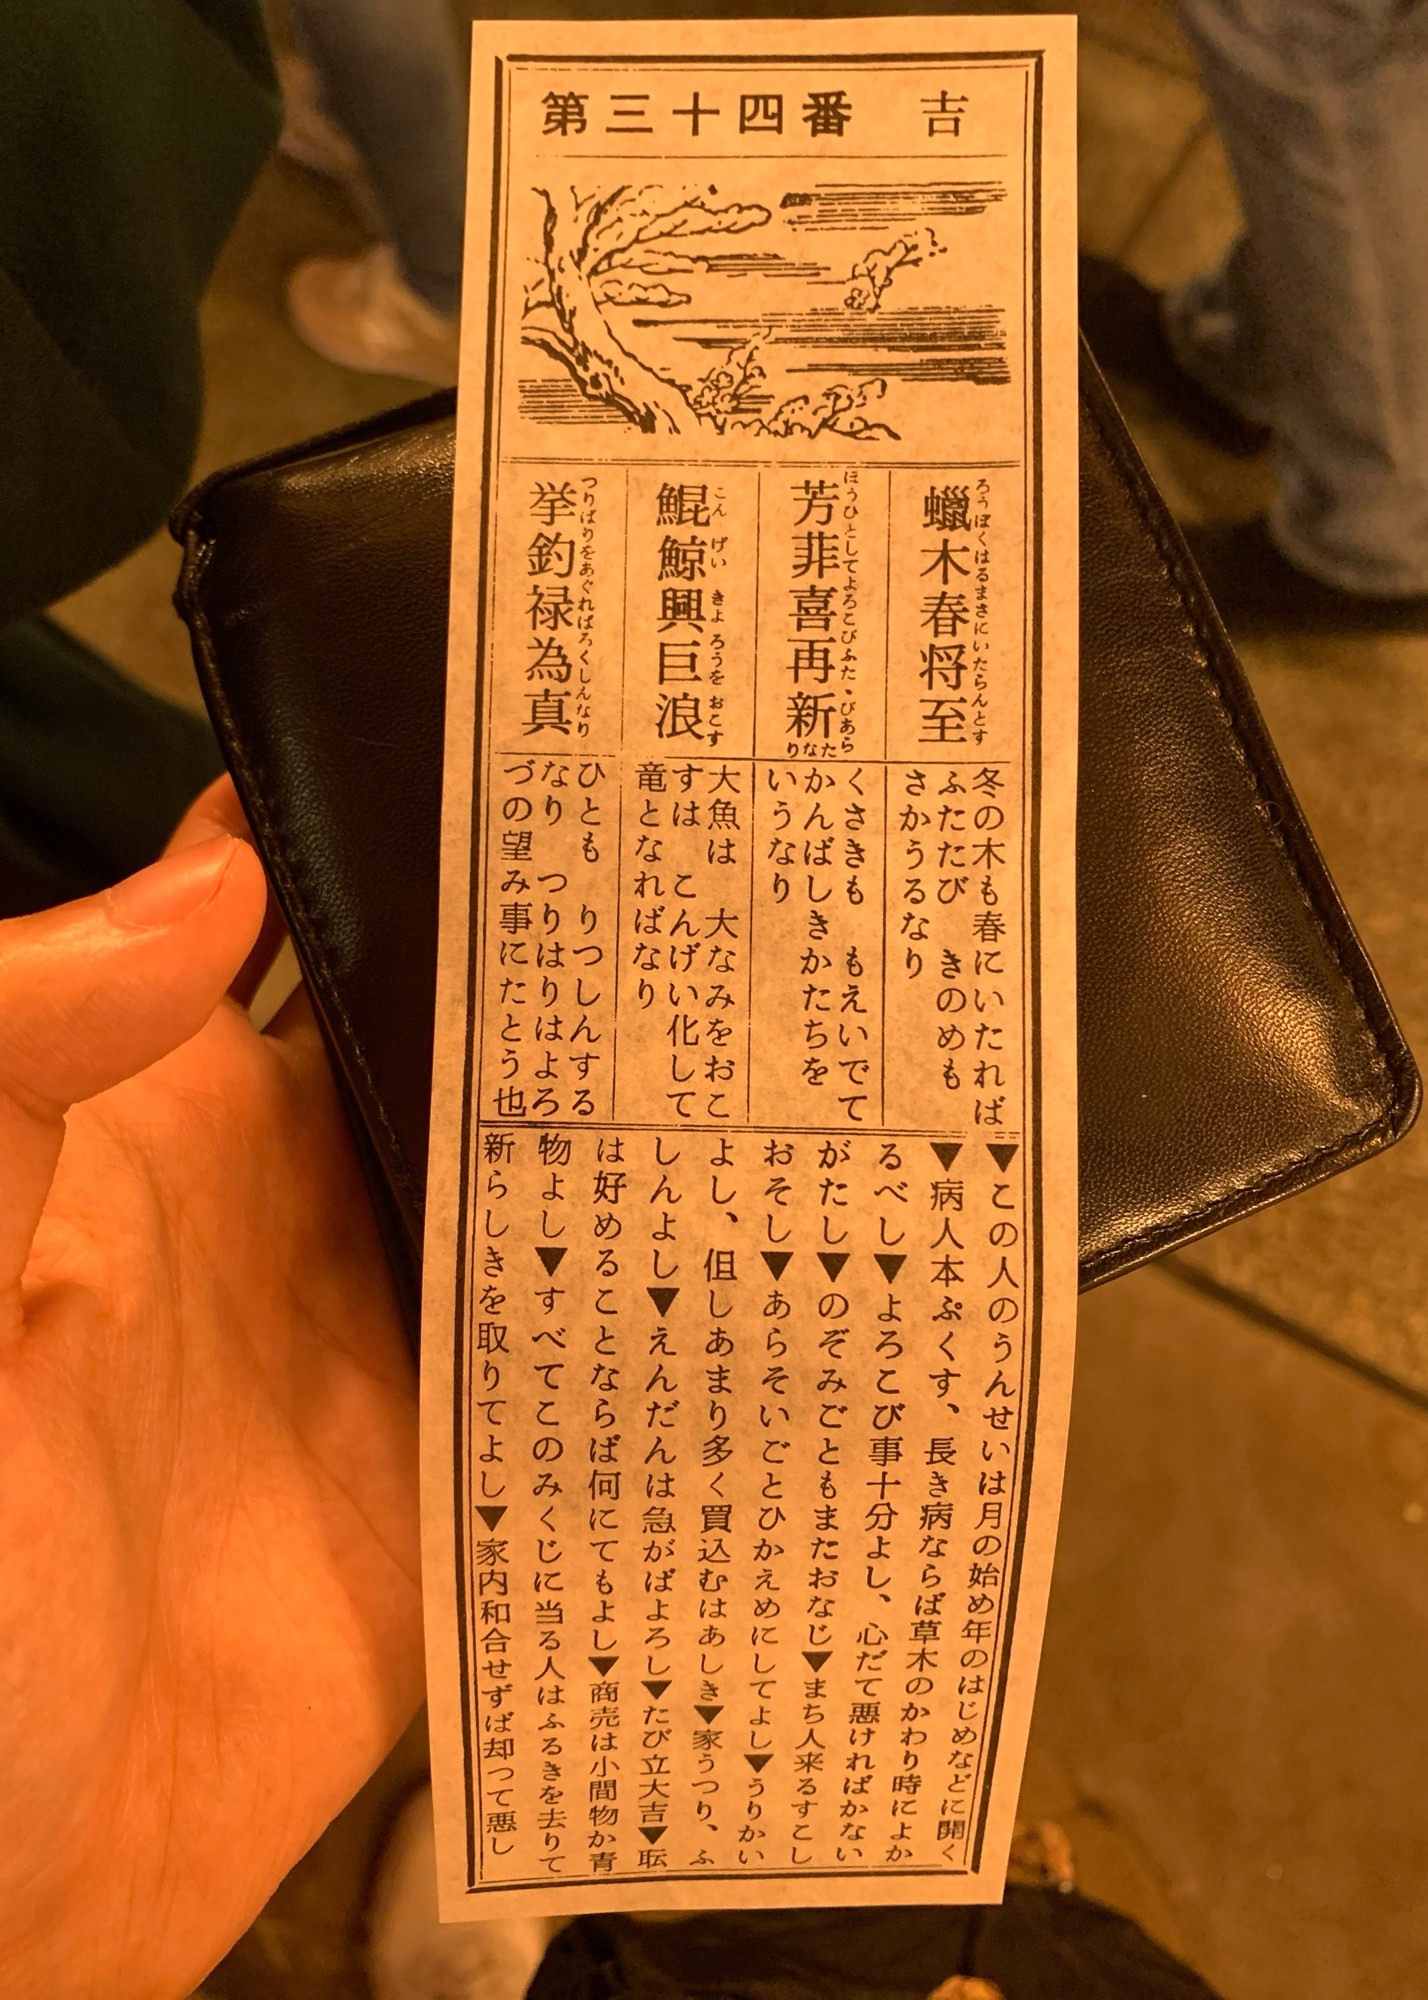 第三十四番 吉
蠟木春将至
ろうぼくはるまさにいたらんとす
芳非喜再新
ほうひとしてよろこびふたゝびあらたなり
鯤鯨興巨浪
こんげいきよろうをおこす
挙釣禄為真
つりばりをあぐればろくしんなり
冬の木も春にいたれば
ふたたび きのめも
さかうるなり
くさきも もえいでて
かんばしきかたちを
いうなり
大魚は 大なみをおこ
すは こんげい化して
竜となればなり
ひとも りつしんする
なり つりはりはよろ
づの望み事にたとう也
▼この人のうんせいは月の始め年のはじめなどに開く
▼病人本ぷくす、長き病ならば草木のかわり時によか
るべし▼よろこび事十分よし、心だて悪ければかない
がたし▼のぞみごともまたおなじ▼まち人来るすこし
おそし▼あらそいごとひかえめにしてよし▼うりかい
よし、但しあまり多く買込むはあしき▼家うつり、ふ
しんよし▼えんだんは急がばよろし▼たび立大吉▼転
は好めることならば何にてもよし▼商売は小間物か青
物よし▼すべてこのみくじに当る人はふるきを去りて
新らしきを取りてよし▼家内和合せずば却つて悪し